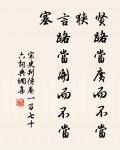 賢路當廣而不當
狹
言路當開而不當
塞
宋史列傳卷一百七十
六詞典調集